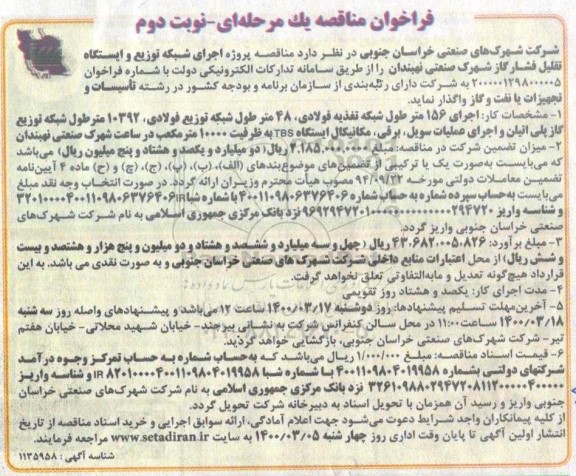 فراخوان مناقصه یك مرحله‌ای-نوبت دوم
شرکت شهرک‌های صنعتی خراسان جنوبی در نظر دارد مناقصه پروژه اجرای شبکه توزیع و ایستگاه
تقلیل فشار گاز شهرک صنعتی نهبندان را از طریق سامانه تدارکات الکترونیکی دولت با شماره فراخوان
۲۰۰۰۰۰۱۲۹۸۰۰۰۰۰۵ به شرکت دارای رتبه‌بندی از سازمان برنامه و بودجه کشور در رشته تأسیسات و
تجهیزات یا نفت و گاز واگذار نماید.
۱- مشخصات کار: اجرای ۱۵۶ متر طول شبکه تغذیه فولادی، ۴۸ متر طول شبکه توزیع فولادی، ۱۰۳۹۲ مترطول شبکه توزیع
گاز پلی اتیلن و اجرای عملیات سویل، برقی، مکانیکال ایستگاه TBS به ظرفیت ۱۰۰۰۰ مترمکعب در ساعت شهرک صنعتی نهبندان
۲- میزان تضمین شرکت در مناقصه: مبلغ ۲.۱۸۵.۰۰۰.۰۰۰ ریال (دو میلیارد و یکصد و هشتاد و پنج میلیون ریال) می‌باشد
که می‌بایست به‌صورت یک یا ترکیبی از تضمین‌های موضوع‌بندهای (الف)، (ب)، (پ)، (ج)، (چ) و (ح) ماده ۴ آیین‌نامه
تضمین معاملات دولتی مورخه ۹۴/۰۹/۲۲ مصوب هیأت محترم وزیران ارائه گردد. در صورت انتخاب وجه نقد مبلغ
می‌بایست به‌حساب سپرده شماره به حساب شماره ۴۰۰۱۱۰۹۸۰۶۳۷۶۴۰۶ با شماره شبا
و شناسه واریز نزد بانک مرکزی جمهوری اسلامی به نام شرکت شهرک‌های
صنعتی خراسان جنوبی واریز گردد.
۳- مبلغ برآورد: ۴۳.۶۸۲.۰۰۵.۸۲۶ ریال (چهل و سه میلیارد و ششصد و هشتاد و دو میلیون و پنج هزار و هشتصد و بیست
و شش ریال) از محل اعتبارات منابع داخلی شرکت شهرک های صنعتی خراسان جنوبی و به صورت نقدی می باشد. به این
قرارداد هیچ‌گونه تعدیل و مابه‌التفاوتی تعلق نخواهد گرفت.
۴- مدت اجرای کار: یکصد و هشتاد روز تقویمی
۵- آخرین‌مهلت تسلیم پیشنهادها: روز دوشنبه ۱۴۰۰/۰۳/۱۷ ساعت ۱۲ می‌باشد و پیشنهادهای واصله روز سه شنبه
۱۴۰۰/۰۳/۱۸ ساعت ۱۱:۰۰ در محل سالن کنفرانس شرکت به نشانی بیرجند- خیابان شهید محلاتی- خیابان هفتم
تیر- شرکت شهرک های صنعتی خراسان جنوبی، بازگشایی خواهد گردید.
۶- قیمت اسناد مناقصه: مبلغ ۱/۰۰۰/۰۰۰ ریال می‌باشد که به‌حساب شماره به حساب تمرکز وجوه درآمد
شرکتهای دولتی بشماره ۴۰۰۱۱۰۹۸۰۴۰۱۹۹۵۸ با شماره شبا و شناسه واریز
نزد بانک مرکزی جمهوری اسلامی به نام شرکت شهرک‌های صنعتی خراسان
جنوبی واریز و رسید آن همزمان با تحویل اسناد به دبیرخانه شرکت تحویل گردد.
از کلیه پیمانکاران واجد شرایط دعوت می‌شود جهت اعلام آمادگی، ارائه سوابق اجرایی و خرید اسناد مناقصه از تاریخ
انتشار اولین آگهی تا پایان وقت اداری روز چهار شنبه ۱۴۰۰/۰۳/۰۵ به سایت www.setadiran.ir مراجعه فرمایند.
شناسه آگهی: ۱۱۳۵۹۵۸